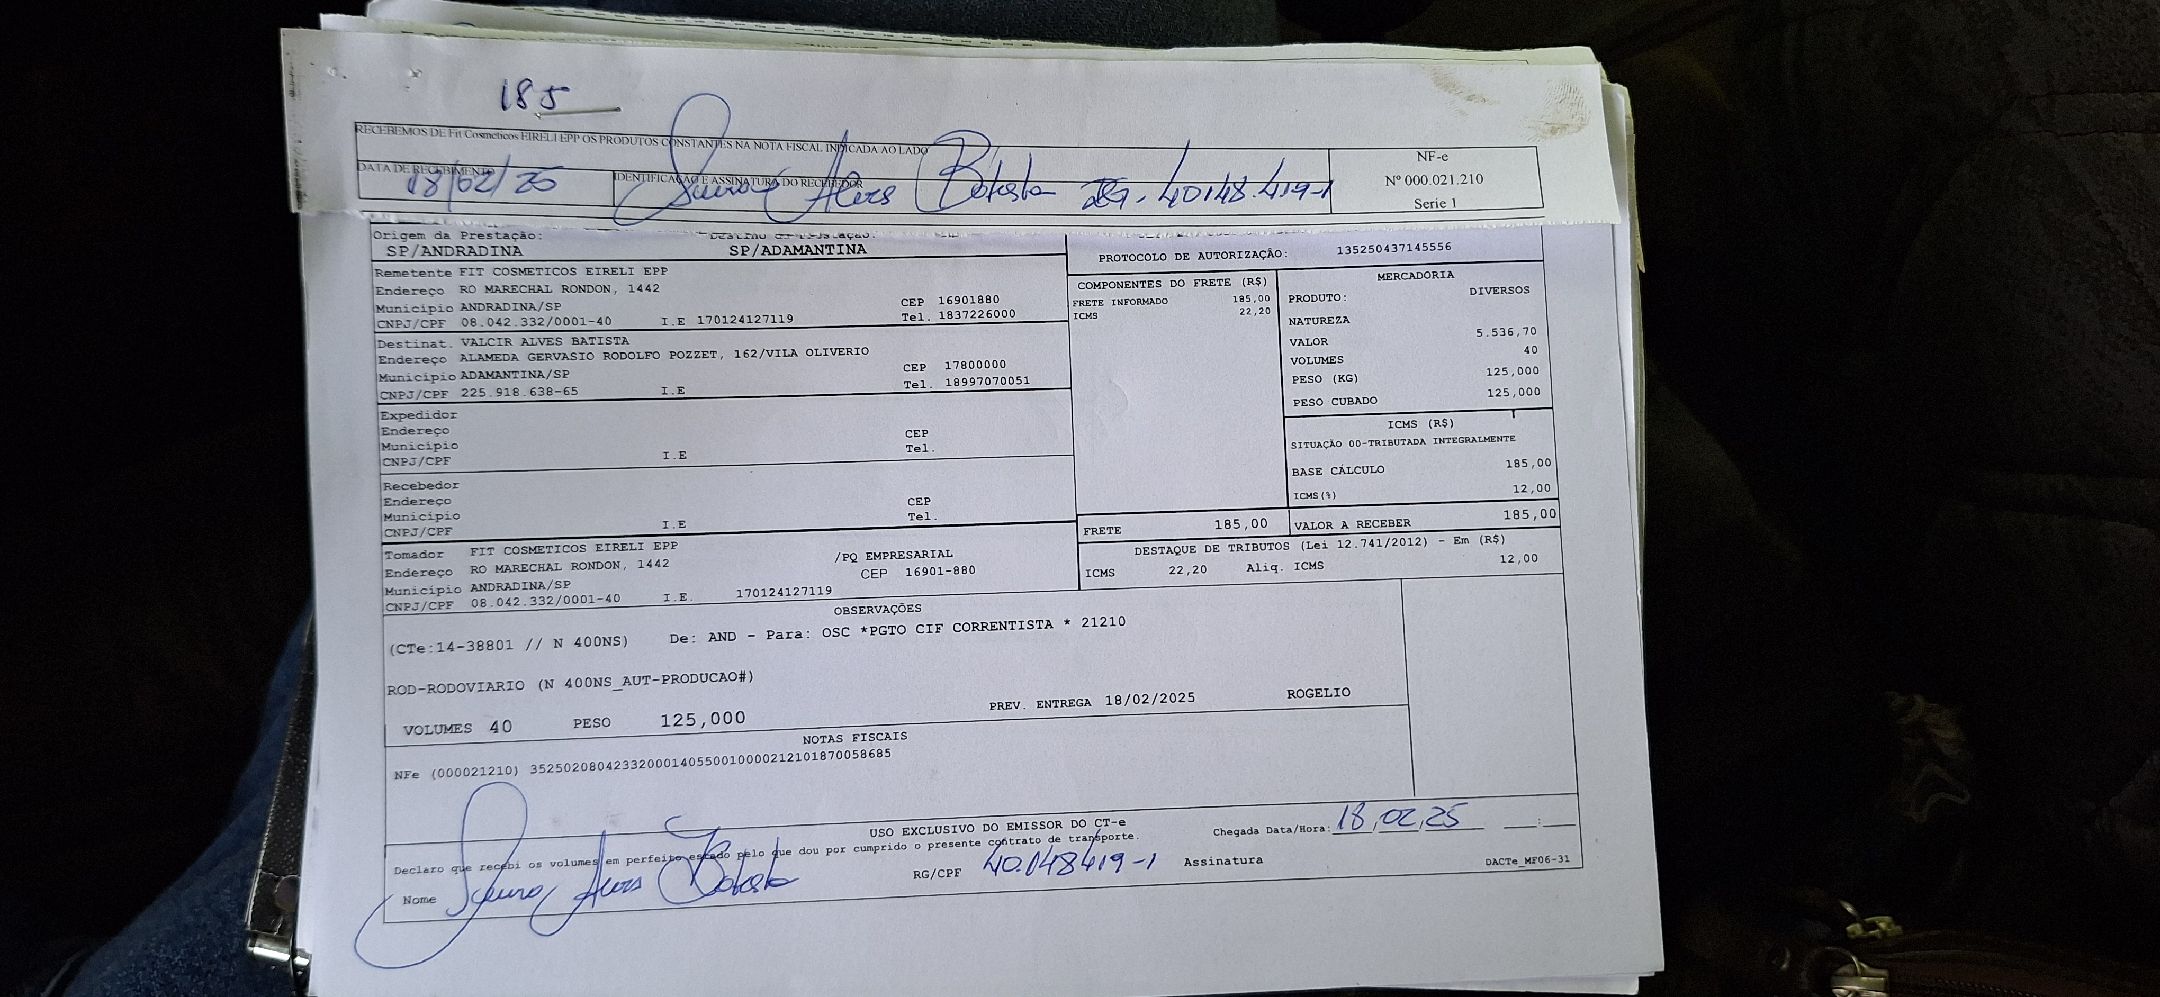 185
RECEBEMOS DE Fit Cosmeticos EIRELI EPP OS PRODUTOS CONSTANTES NA NOTA FISCAL INDICADA AO LADO
DATA DE RECEBIMENTO
18/02/25
IDENTIFICAÇÃO E ASSINATURA DO RECEBEDOR
Alves Batista RG. 40148.419-1
NF-e
Nº 000.021.210
Serie 1
Origem da Prestação:
SP/ANDRADINA
SP/ADAMANTINA
PROTOCOLO DE AUTORIZAÇÃO: 135250437145556
Remetente FIT COSMETICOS EIRELI EPP
Endereço RO MARECHAL RONDON, 1442
Município ANDRADINA/SP CEP 16901880
CNPJ/CPF 08.042.332/0001-40 I.E 170124127119 Tel. 1837226000
Destinat. VALCIR ALVES BATISTA
Endereço ALAMEDA GERVASIO RODOLFO POZZET, 162/VILA OLIVERIO
Município ADAMANTINA/SP CEP 17800000
CNPJ/CPF 225.918.638-65 I.E Tel. 18997070051
Expedidor
Endereço
Município CEP
CNPJ/CPF I.E Tel.
Recebedor
Endereço
Município CEP
CNPJ/CPF I.E Tel.
Tomador FIT COSMETICOS EIRELI EPP
Endereço RO MARECHAL RONDON, 1442 /PQ EMPRESARIAL
Município ANDRADINA/SP CEP 16901-880
CNPJ/CPF 08.042.332/0001-40 I.E. 170124127119
COMPONENTES DO FRETE (R$)
FRETE INFORMADO 185,00
ICMS 22,20
MERCADORIA
PRODUTO: DIVERSOS
NATUREZA
VALOR 5.536,70
VOLUMES 40
PESO (KG) 125,000
PESO CUBADO 125,000
ICMS (R$)
SITUAÇÃO 00-TRIBUTADA INTEGRALMENTE
BASE CÁLCULO 185,00
ICMS(%) 12,00
FRETE 185,00 VALOR A RECEBER 185,00
DESTAQUE DE TRIBUTOS (Lei 12.741/2012) - Em (R$)
ICMS 22,20 Aliq. ICMS 12,00
OBSERVAÇÕES
(CTe:14-38801 // N 400NS) De: AND - Para: OSC *PGTO CIF CORRENTISTA * 21210
ROD-RODOVIARIO (N 400NS_AUT-PRODUCAO#)
VOLUMES 40 PESO 125,000 PREV. ENTREGA 18/02/2025 ROGELIO
NOTAS FISCAIS
NFe (000021210) 35250208042332000140550010000212101870058685
USO EXCLUSIVO DO EMISSOR DO CT-e
Declaro que recebi os volumes em perfeito estado pelo que dou por cumprido o presente contrato de transporte.
Chegada Data/Hora: 18,02,25 __:__
Nome Alves Batista RG/CPF 40.148419-1 Assinatura
DACTe_MF06-31